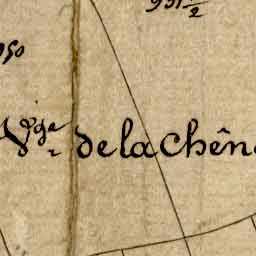 931 1/2
950
Vge de la Chên